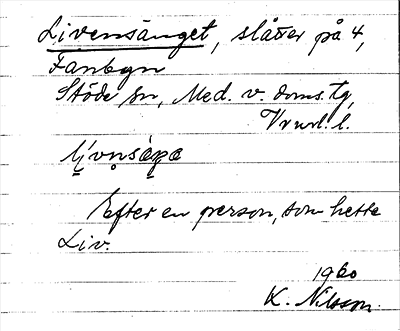 Livensänget, slåtter på 4,
Fanbyn
Stöde sn, Med. v. doms. tg,
Vrml. l.
Efter en person, som hette
Liv.
1960
K. Nilsson.